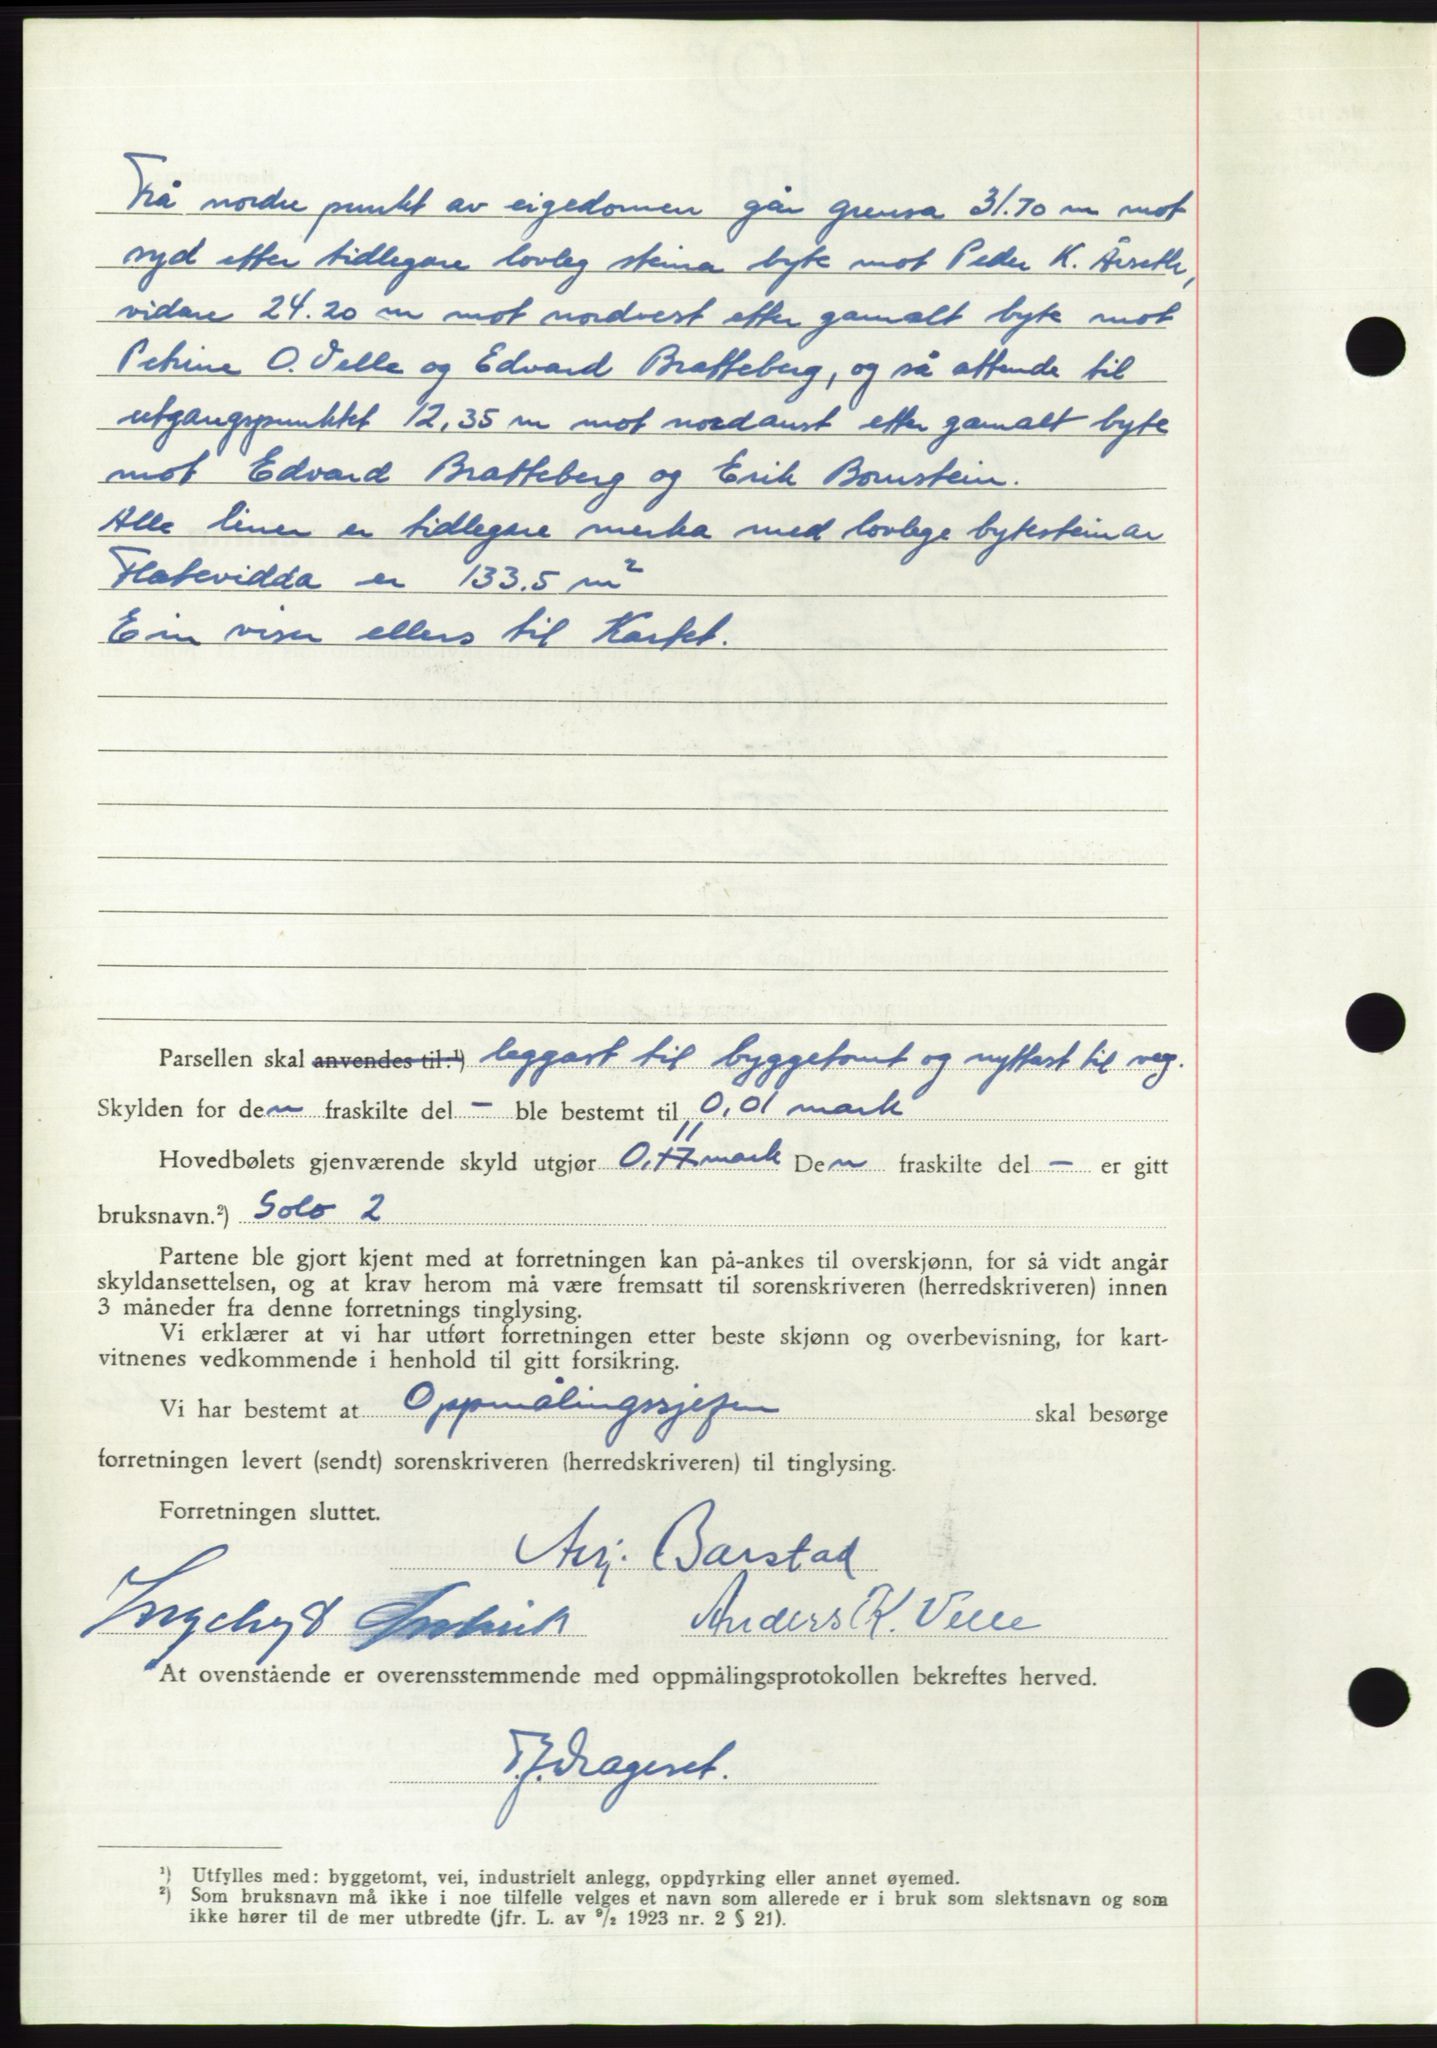 Frå nordre punkt av eigedomen går grensa 31.70 m mot
syd etter tidlegare lovleg steina byte mot Peder K. Årseth,
vidare 24.20 m mot nordvest etter gamalt byte mot
Petrine O. Velle og Edvard Bratteberg, og så attende til
utgangspunktet 12,35 m mot nordaust etter gamalt byte
mot Edvard Bratteberg og Erik Bornstein.
Alle liner er tidlegare merka med lovlege bytesteinar
Flatevidda er 133.5 m²
Ein viser ellers til Kartet.
Parsellen skal anvendes til:¹) leggast til byggetomt og nyttast til veg.
Skylden for den fraskilte del – ble bestemt til 0,01 mark
Hovedbølets gjenværende skyld utgjør 0,17 11 mark Den fraskilte del – er gitt
bruksnavn.²) Solo 2
Partene ble gjort kjent med at forretningen kan på-ankes til overskjønn, for så vidt angår
skyldansettelsen, og at krav herom må være fremsatt til sorenskriveren (herredskriveren) innen
3 måneder fra denne forretnings tinglysing.
Vi erklærer at vi har utført forretningen etter beste skjønn og overbevisning, for kart-
vitnenes vedkommende i henhold til gitt forsikring.
Vi har bestemt at Oppmålingssjefen skal besørge
forretningen levert (sendt) sorenskriveren (herredskriveren) til tinglysing.
Forretningen sluttet.
Barstad
Anders K. Velle
At ovenstående er overensstemmende med oppmålingsprotokollen bekreftes herved.
Drageset.
¹) Utfylles med: byggetomt, vei, industrielt anlegg, oppdyrking eller annet øyemed.
²) Som bruksnavn må ikke i noe tilfelle velges et navn som allerede er i bruk som slektsnavn og som
ikke hører til de mer utbredte (jfr. L. av 9/2 1923 nr. 2 § 21).